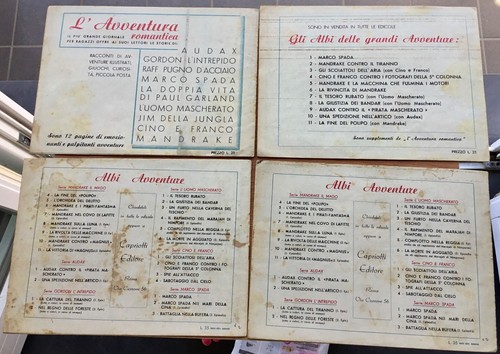 L'Avventura
romantica
IL PIÙ GRANDE GIORNALE
PER RAGAZZI OFFRE AI SUOI LETTORI LE STORIE DI:
RACCONTI DI AV-
VENTURE ILLUSTRATI,
GIUOCHI, CURIOSI-
TÀ, PICCOLA POSTA
AUDAX
GORDON L'INTREPIDO
RAFF PUGNO D'ACCIAIO
MARCO SPADA
LA DOPPIA VITA
DI PAUL GARLAND
L'UOMO MASCHERATO
JIM DELLA JUNGLA
CINO E FRANCO
MANDRAKE
Sono 12 pagine di emozio-
nanti e palpitanti avventure
PREZZO L. 25
SONO IN VENDITA IN TUTTE LE EDICOLE
Gli Albi delle grandi Avventure:
1 - MARCO SPADA
2 - MANDRAKE CONTRO IL TIRANNO
3 - GLI SCOIATTOLI DELL'ARIA (con Cino e Franco)
4 - CINO E FRANCO CONTRO I FOTOGRAFI DELLA 5ª COLONNA
5 - MANDRAKE E LA MACCHINA CHE FULMINA I MOTORI
6 - LA RIVINCITA DI MANDRAKE
7 - IL TESORO RUBATO (con l'Uomo Mascherato)
8 - LA GIUSTIZIA DEI BANDAR (con l'Uomo Mascherato)
9 - AUDAX CONTRO IL «PIRATA MASCHERATO»
10 - UNA SPEDIZIONE NELL'ARTICO (con Audax)
11 - LA FINE DEL POLIPO (con Mandrake)
Sono supplementi de "l'Avventura romantica"
PREZZO L. 25
Albi Avventure
Serie MANDRAKE IL MAGO
1 - LA FINE DEL «POLIPO»
2 - L'ORCHIDEA DEL DELITTO
3 - MANDRAKE E I PIRATI-FANTASMA
MANDRAKE NEL COVO DI LAFITTE
MANDRAKE SULLA LUNA
LA RIVOLTA DELLE MACCHINE
MANDRAKE CONTRO «MAGNUS»
LA RIVINCITA DI «MAGNUS»
Serie AUDAX
1 - AUDAX CONTRO IL «PIRATA MA-
SCHERATO»
2 - UNA SPEDIZIONE NELL'ARTICO
Serie GORDON L'INTREPIDO
LA CATTURA DEL TIRANNO
NEL REGNO DELLE FORESTE
Capriotti
Editore
Roma
Serie L'UOMO MASCHERATO
1 - IL TESORO RUBATO
2 - LA GIUSTIZIA DEI BANDAR
3 - UN FURTO NELLA CAVERNA DEL
TESORO
IL RAPIMENTO DEL MARAJAH DI
COMPLOTTO NELLA REGGIA
LA MORTE IN AGGUATO
LA RIVOLTA DELLE SCIMMIE
Serie CINO E FRANCO
GLI SCOIATTOLI DELL'ARIA
CINO E FRANCO CONTRO I FO-
TOGRAFI DELLA 5ª COLONNA
SPIE ALL'ATTACCO
SABOTAGGIO DAL CIELO
Serie MARCO SPADA
MARCO SPADA
MARCO SPADA NEI MARI DELLA
BATTAGLIA NELLA BUFERA
L. 25
Albi Avventure
Serie MANDRAKE IL MAGO
1 - LA FINE DEL «POLIPO»
L'ORCHIDEA DEL DELITTO
MANDRAKE E I PIRATI-FANTASMA
MANDRAKE NEL COVO DI LAFITTE
MANDRAKE SULLA LUNA
LA RIVOLTA DELLE MACCHINE
MANDRAKE CONTRO «MAGNUS»
LA RIVINCITA DI «MAGNUS»
Serie AUDAX
AUDAX CONTRO IL «PIRATA MA-
SCHERATO»
UNA SPEDIZIONE NELL'ARTICO
Serie GORDON L'INTREPIDO
LA CATTURA DEL TIRANNO
NEL REGNO DELLE FORESTE
Capriotti
Editore
Roma
Serie L'UOMO MASCHERATO
1 - IL TESORO RUBATO
LA GIUSTIZIA DEI BANDAR
UN FURTO NELLA CAVERNA DEL
TESORO
IL RAPIMENTO DEL MARAJAH DI
COMPLOTTO NELLA REGGIA
LA MORTE IN AGGUATO
LA RIVOLTA DELLE SCIMMIE
Serie CINO E FRANCO
GLI SCOIATTOLI DELL'ARIA
CINO E FRANCO CONTRO I FO-
TOGRAFI DELLA 5ª COLONNA
SPIE ALL'ATTACCO
SABOTAGGIO DAL CIELO
Serie MARCO SPADA
MARCO SPADA
MARCO SPADA NEI MARI DELLA
BATTAGLIA NELLA BUFERA
L. 25